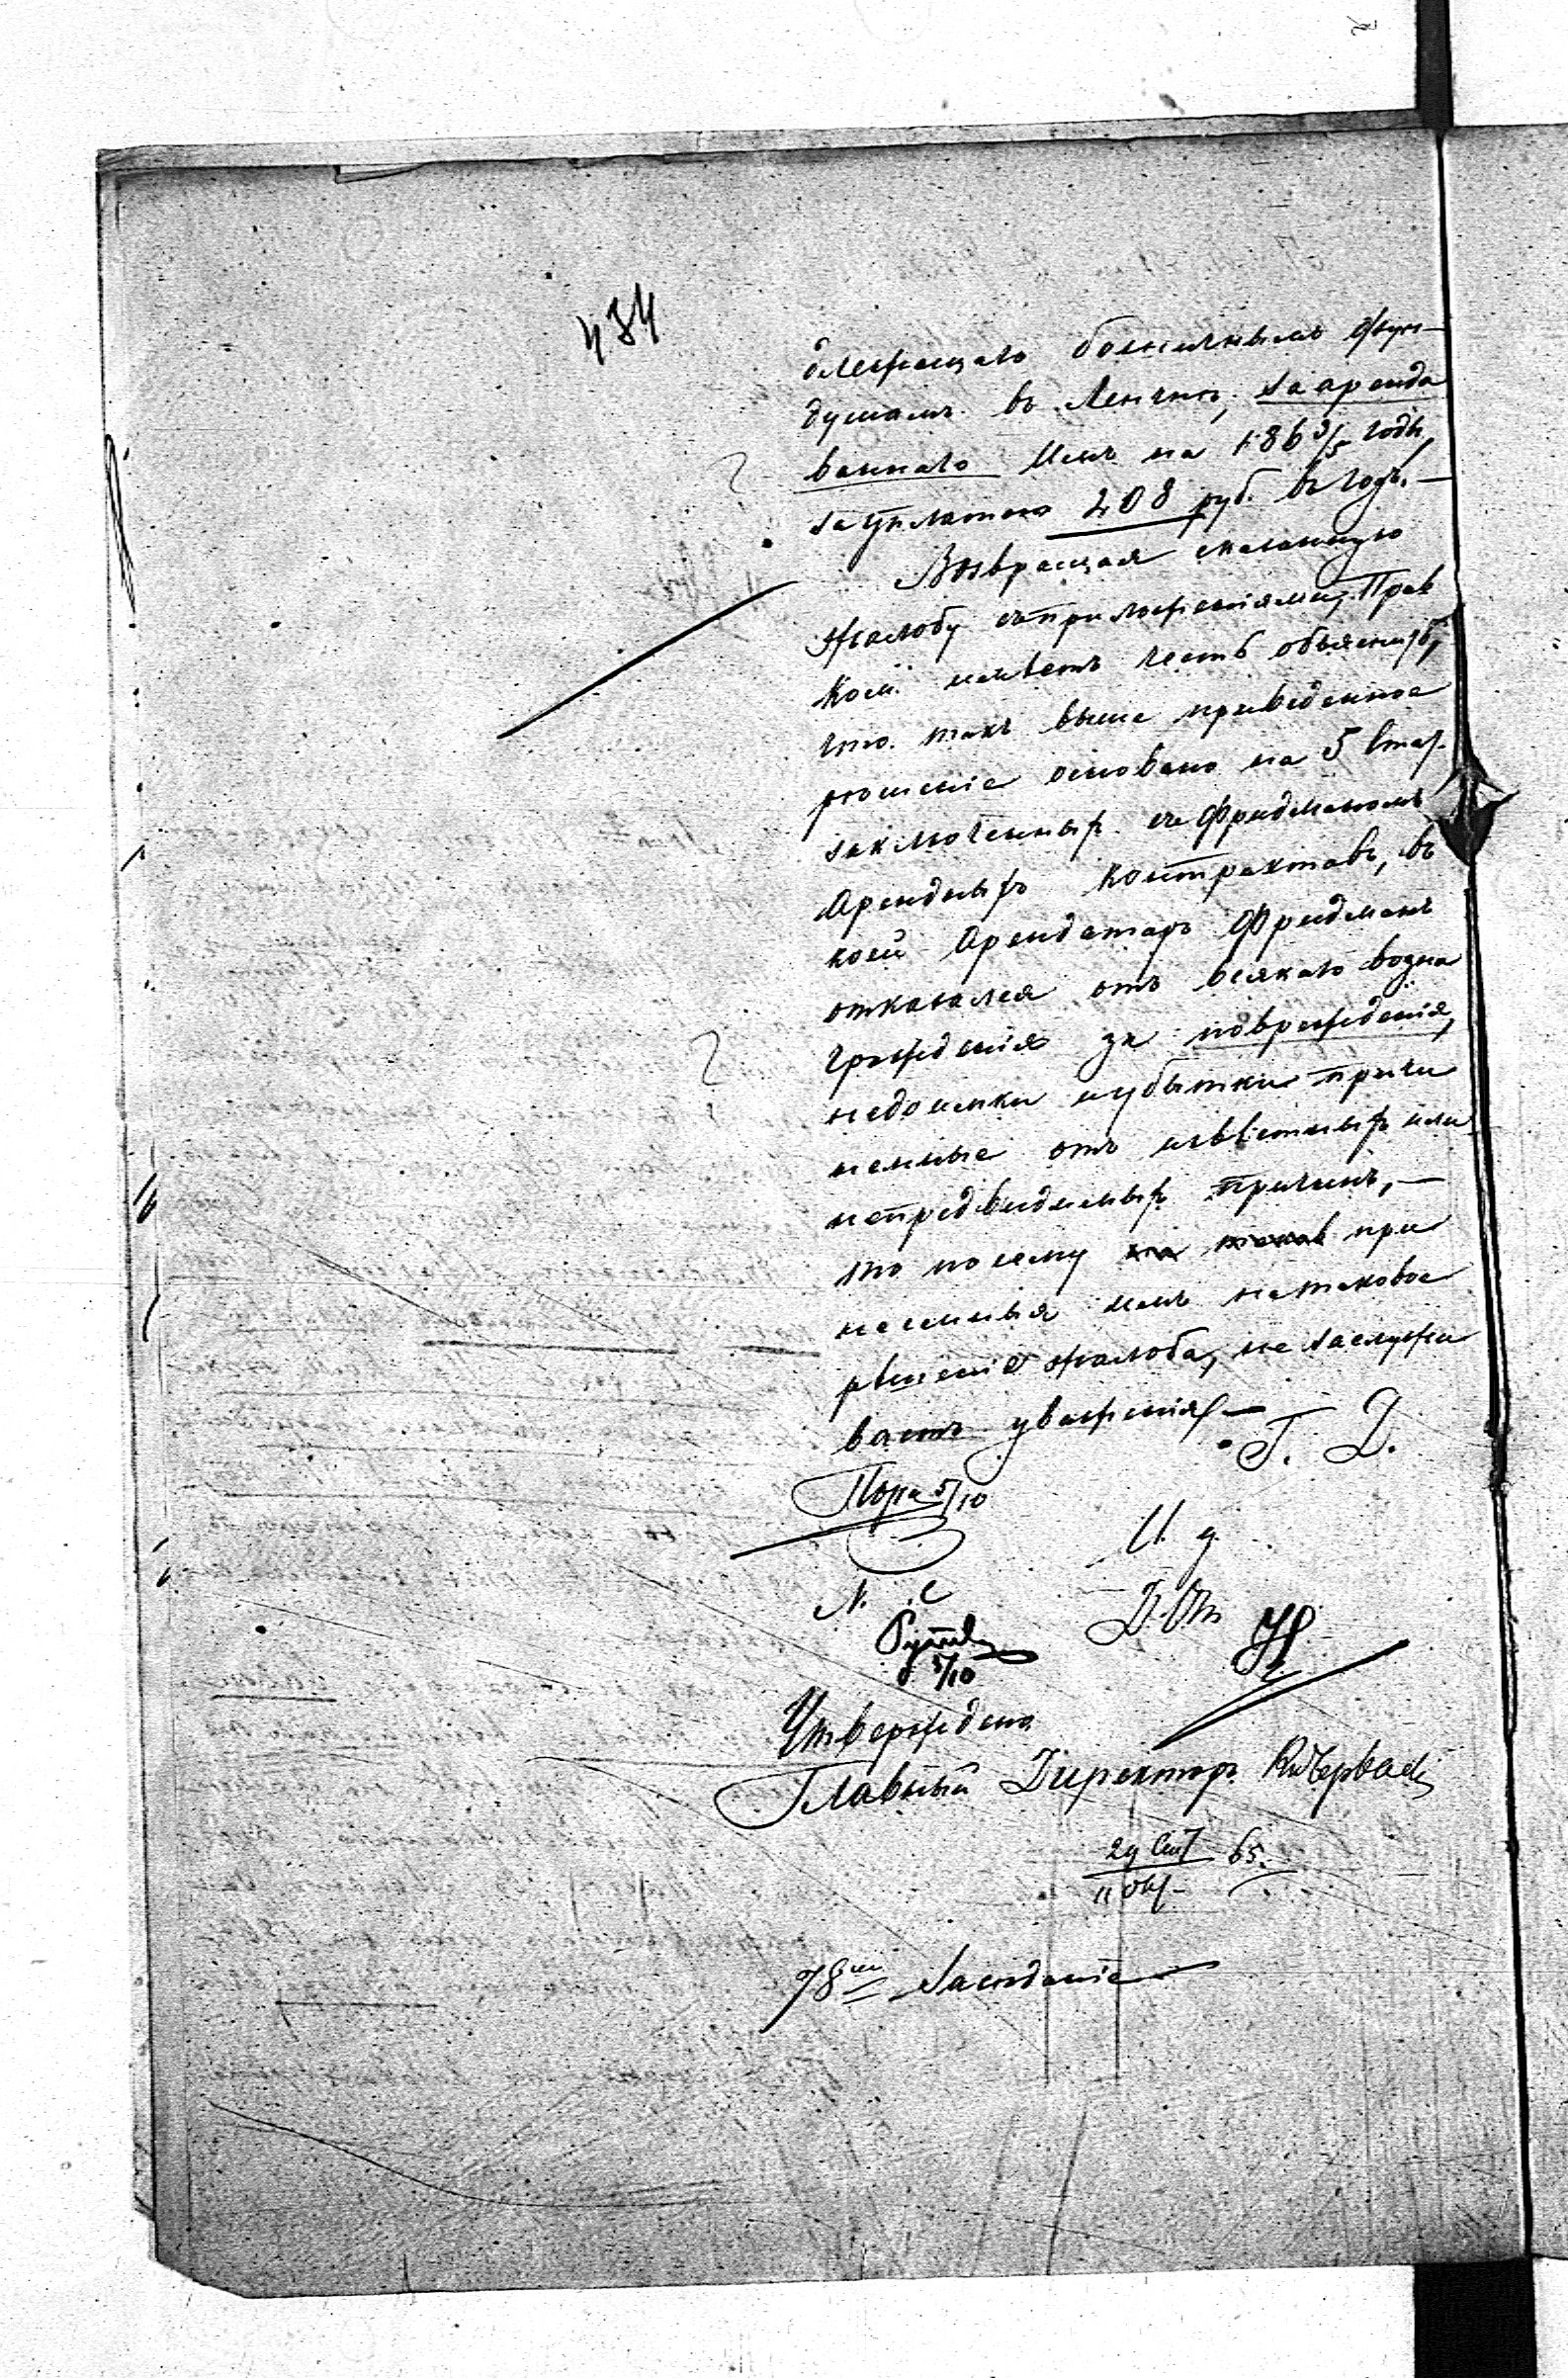 434
длежащаго больничнымъ фун-
душамъ въ Ленчнѣ, заарендо
ваннаго Имъ на 1863/5 годы,
за уплатою 208 руб. въ годъ.—
Возвращая сказанную
жалобу съ приложеніями, Прав
Ком. имѣетъ честь объяснить,
что такъ выше приведенное
рѣшеніе основано на 5 стат.
заключенныхъ съ Фридманомъ
Арендныхъ контрактовъ, въ
коей Арендаторъ Фридманъ
отказался отъ всякаго возна
гражденія за поврежденія,
недоимки и убытки причи
ненные отъ извѣстныхъ или
непредвидимыхъ причинъ,—
то посему при
несенная имъ на таковое
рѣшеніе жалоба, не заслужи
ваетъ уваженія.—
Г. Д.
5/10
И. д.
Н. С
Д. От
5/10
Утверждено
Главный Директоръ
29 Сент 65.
11 Окт.
78ое Засѣданіе